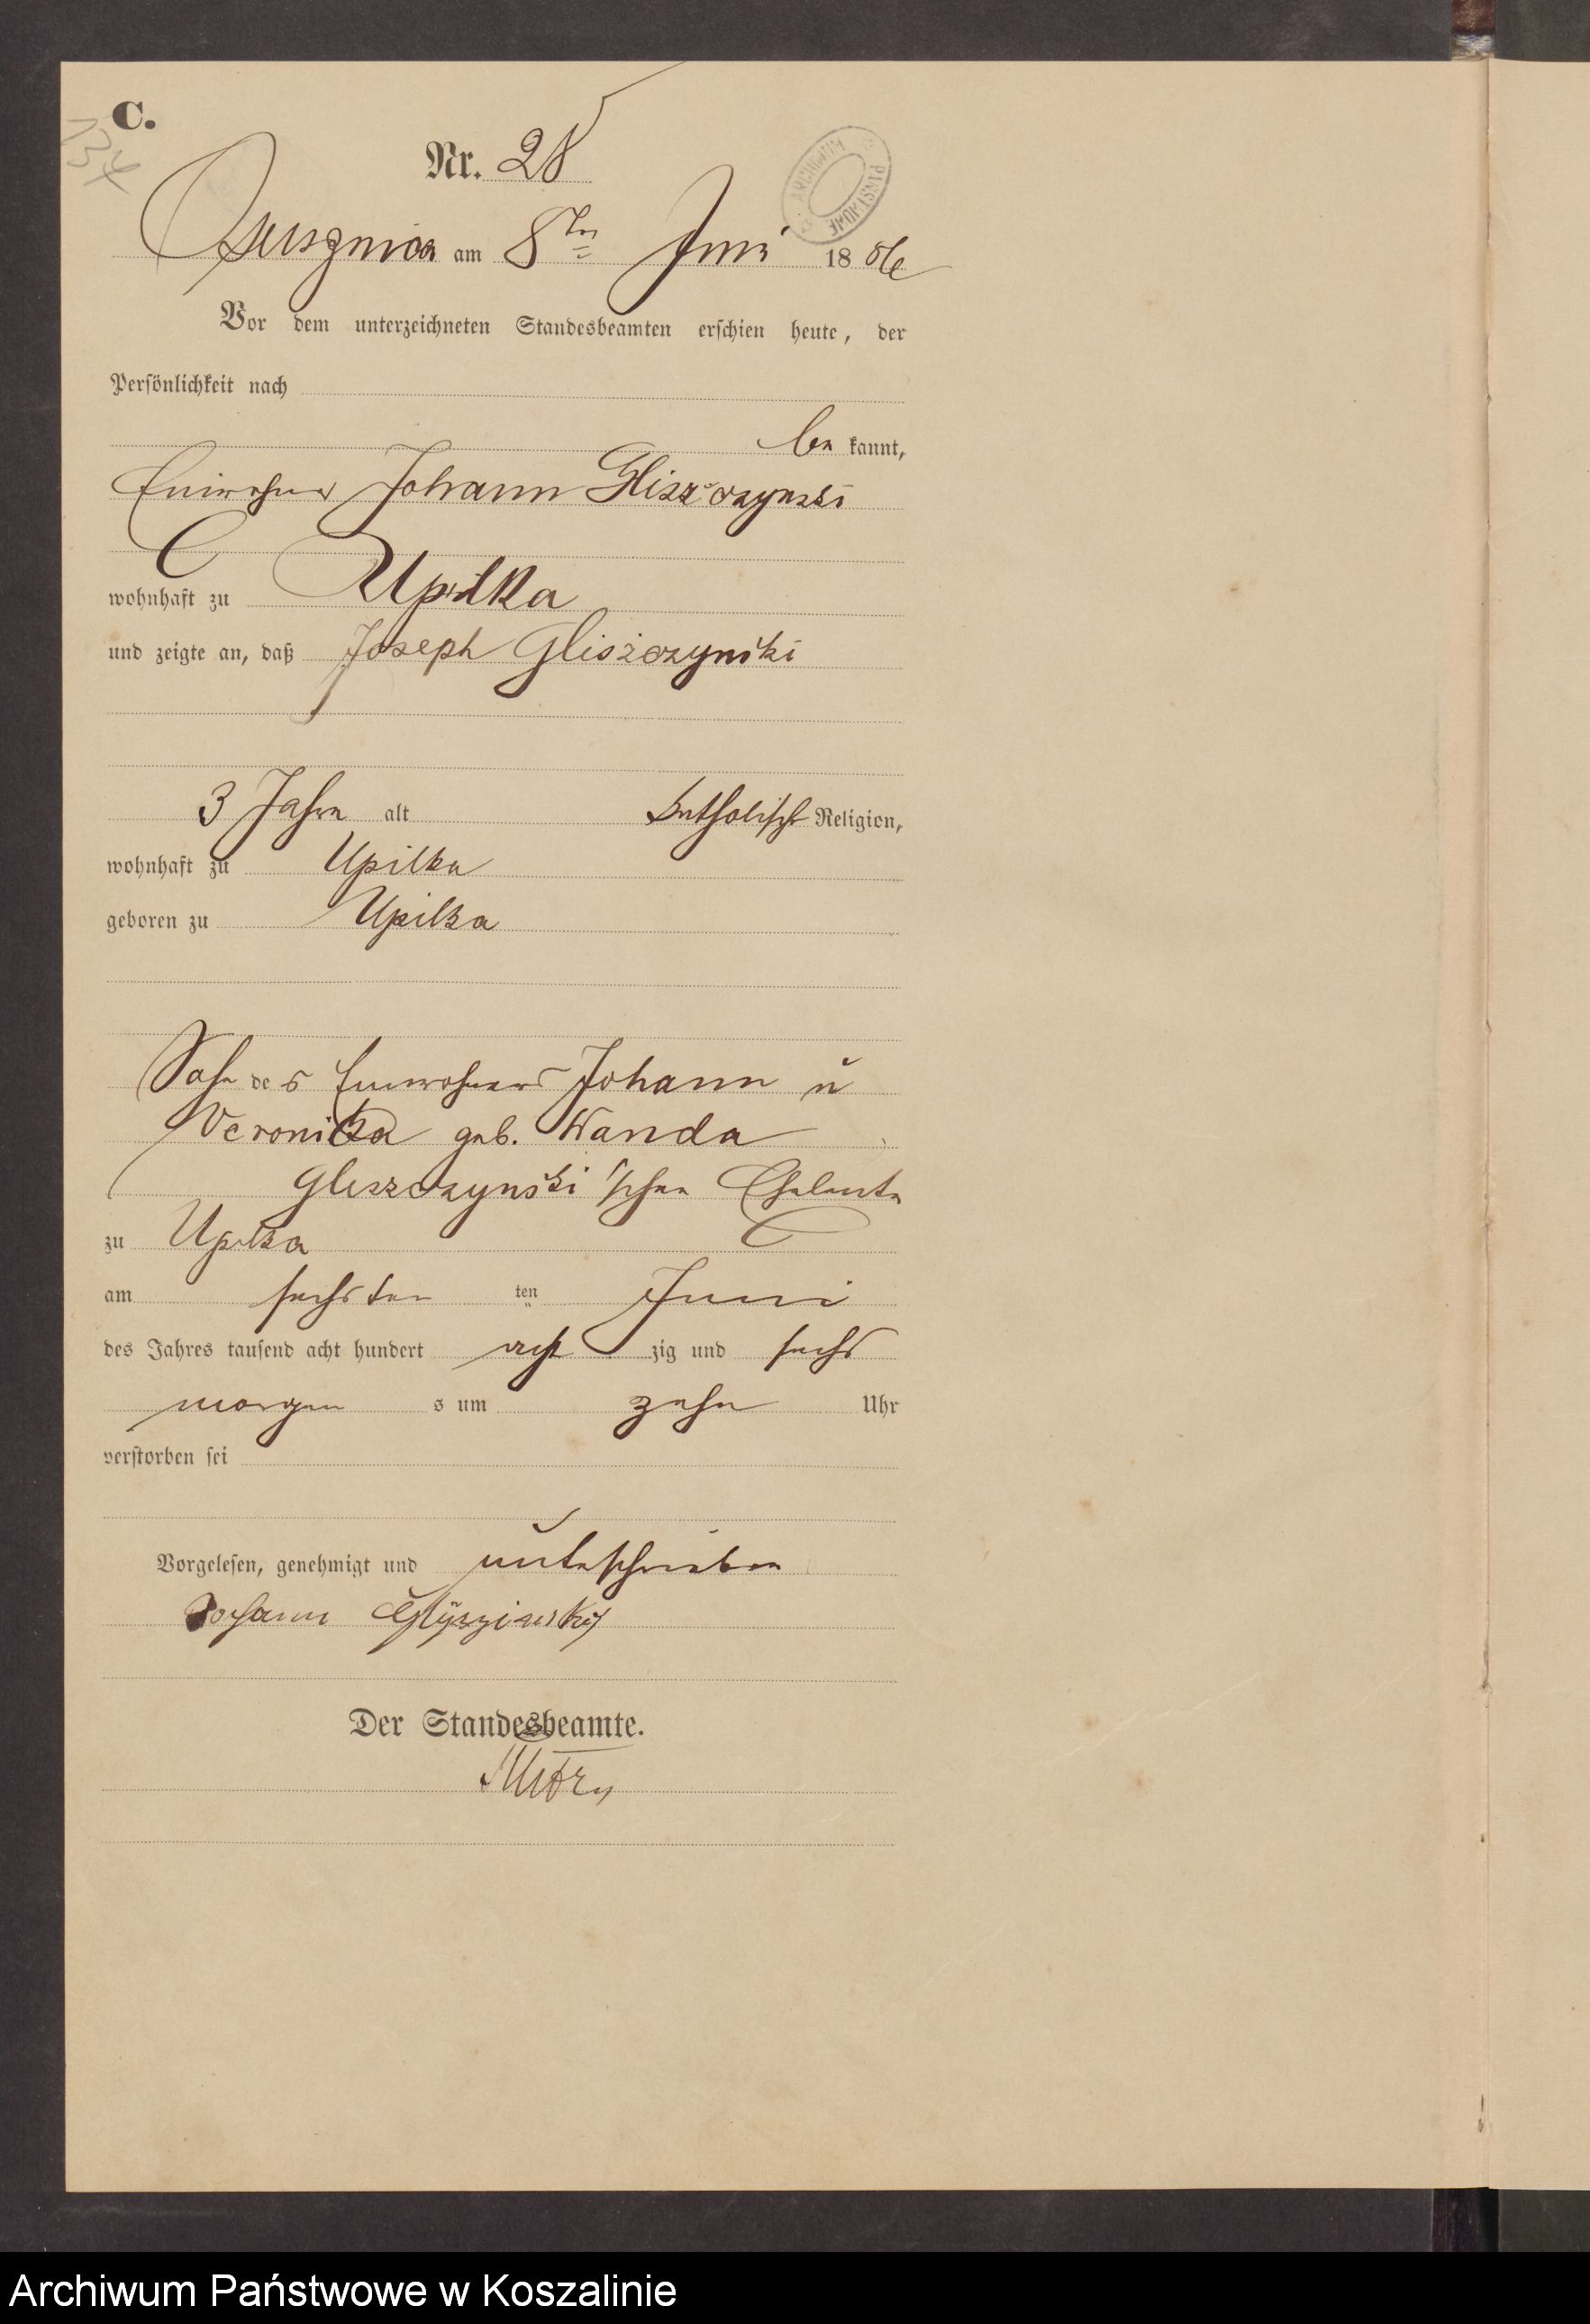 C.
134
Nr. 28
ARCHIWUM PAŃSTWOWE
am 8ten Juni 1886
Vor dem unterzeichneten Standesbeamten erschien heute, der
Persönlichkeit nach
be kannt,
Einwohner Johann Gliszczynski
wohnhaft zu Upilka
und zeigte an, daß Joseph Gliszczynski
3 Jahre alt katholischer Religion,
wohnhaft zu Upilka
geboren zu Upilka
Sohn des Einwohners Johann u
Veronika geb. Wanda
Gliszczynski'schen Eheleute
zu Upilka
am sechsten ten Juni
des Jahres tausend acht hundert acht zig und sechs
morgen s um zehn Uhr
verstorben sei
Vorgelesen, genehmigt und unterschrieben
Johann
Der Standesbeamte.
Archiwum Państwowe w Koszalinie